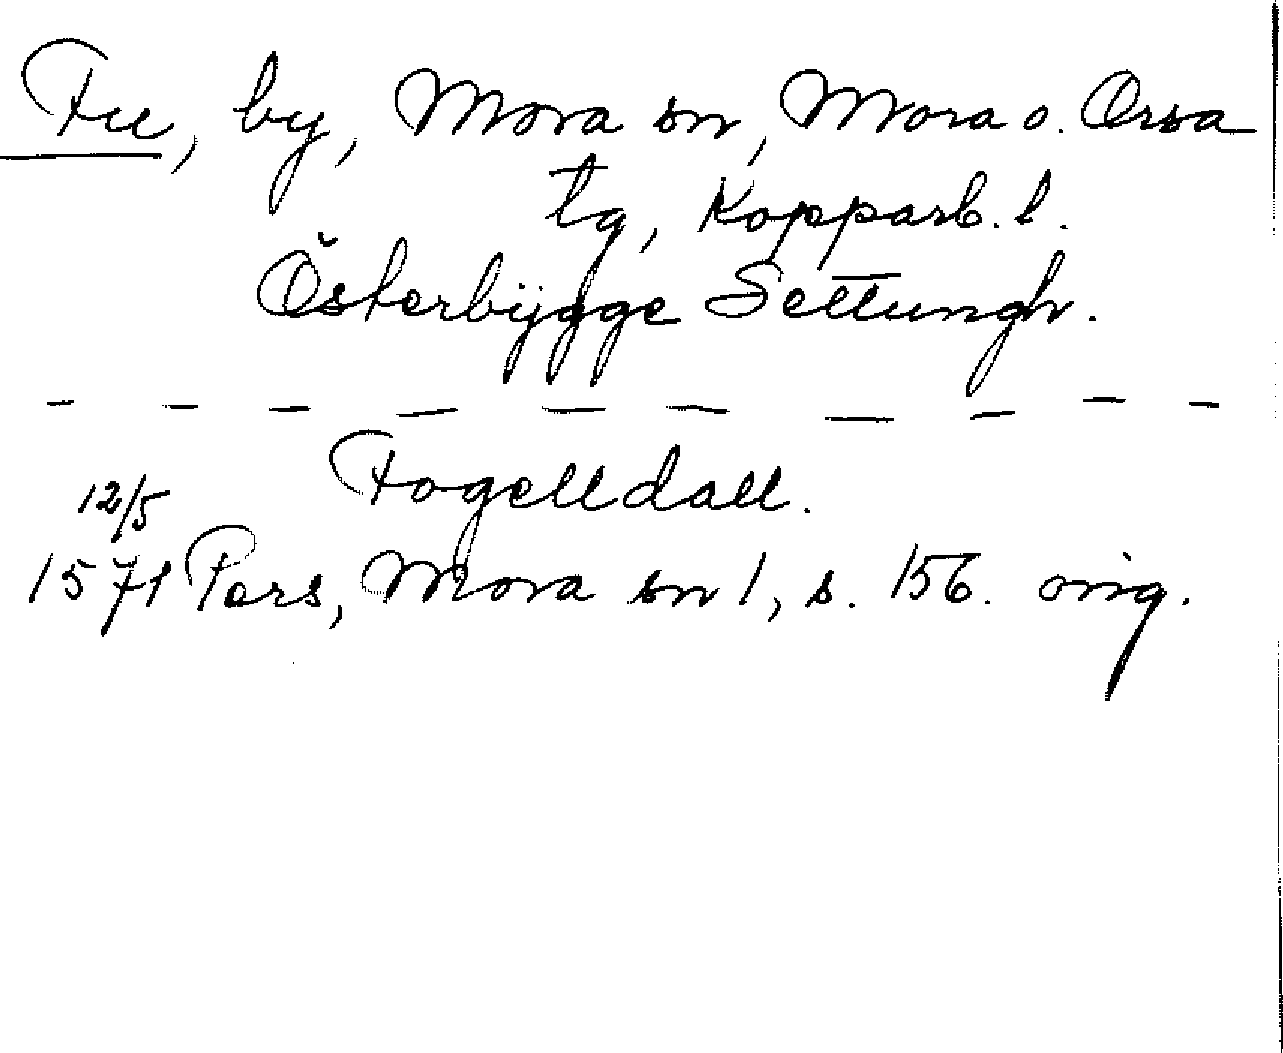 Fu, by, Mora sn, Mora o. Orsa
tg, Kopparb. l.
Österbÿgge Settungh.
— — — — — — — — — —
Fogelldall.
12/5
1571 Pers, Mora sn 1, s. 156. orig.